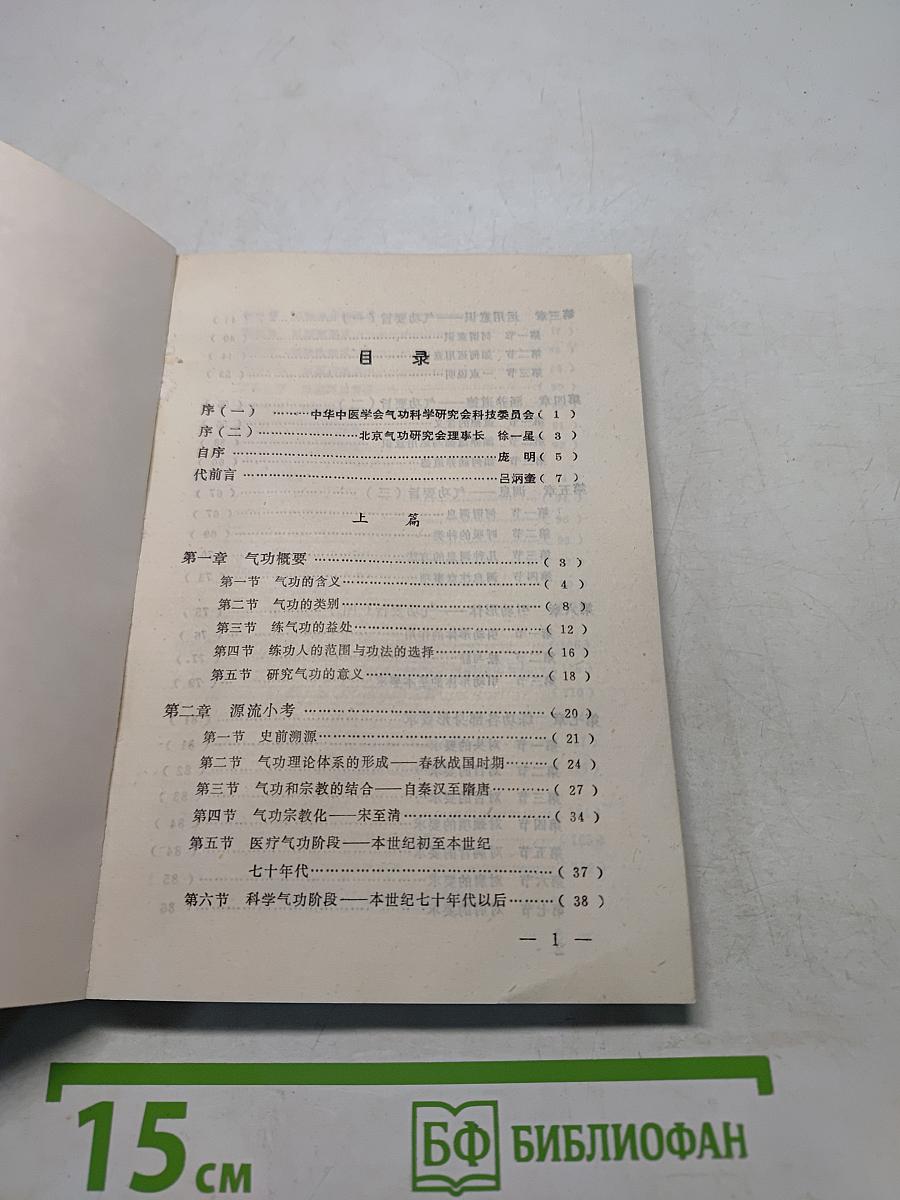 目 录
序(一) ………中华中医学会气功科学研究会科技委员会( 1 )
序(二) ……………………北京气功研究会理事长 徐一星( 3 )
自序 ………………………………………………庞 明( 5 )
代前言 ……………………………………………吕炳奎( 7 )
上 篇
第一章 气功概要 ……………………………………( 3 )
第一节 气功的含义………………………………( 4 )
第二节 气功的类别………………………………( 8 )
第三节 练气功的益处……………………………( 12 )
第四节 练功人的范围与功法的选择………………( 16 )
第五节 研究气功的意义…………………………( 18 )
第二章 源流小考 ……………………………………( 20 )
第一节 史前溯源…………………………………( 21 )
第二节 气功理论体系的形成——春秋战国时期………( 24 )
第三节 气功和宗教的结合——自秦汉至隋唐…………( 27 )
第四节 气功宗教化——宋至清……………………( 34 )
第五节 医疗气功阶段——本世纪初至本世纪
七十年代……………………………………( 37 )
第六节 科学气功阶段——本世纪七十年代以后………( 38 )
— 1 —
15 см
БФ БИБЛИОФАН